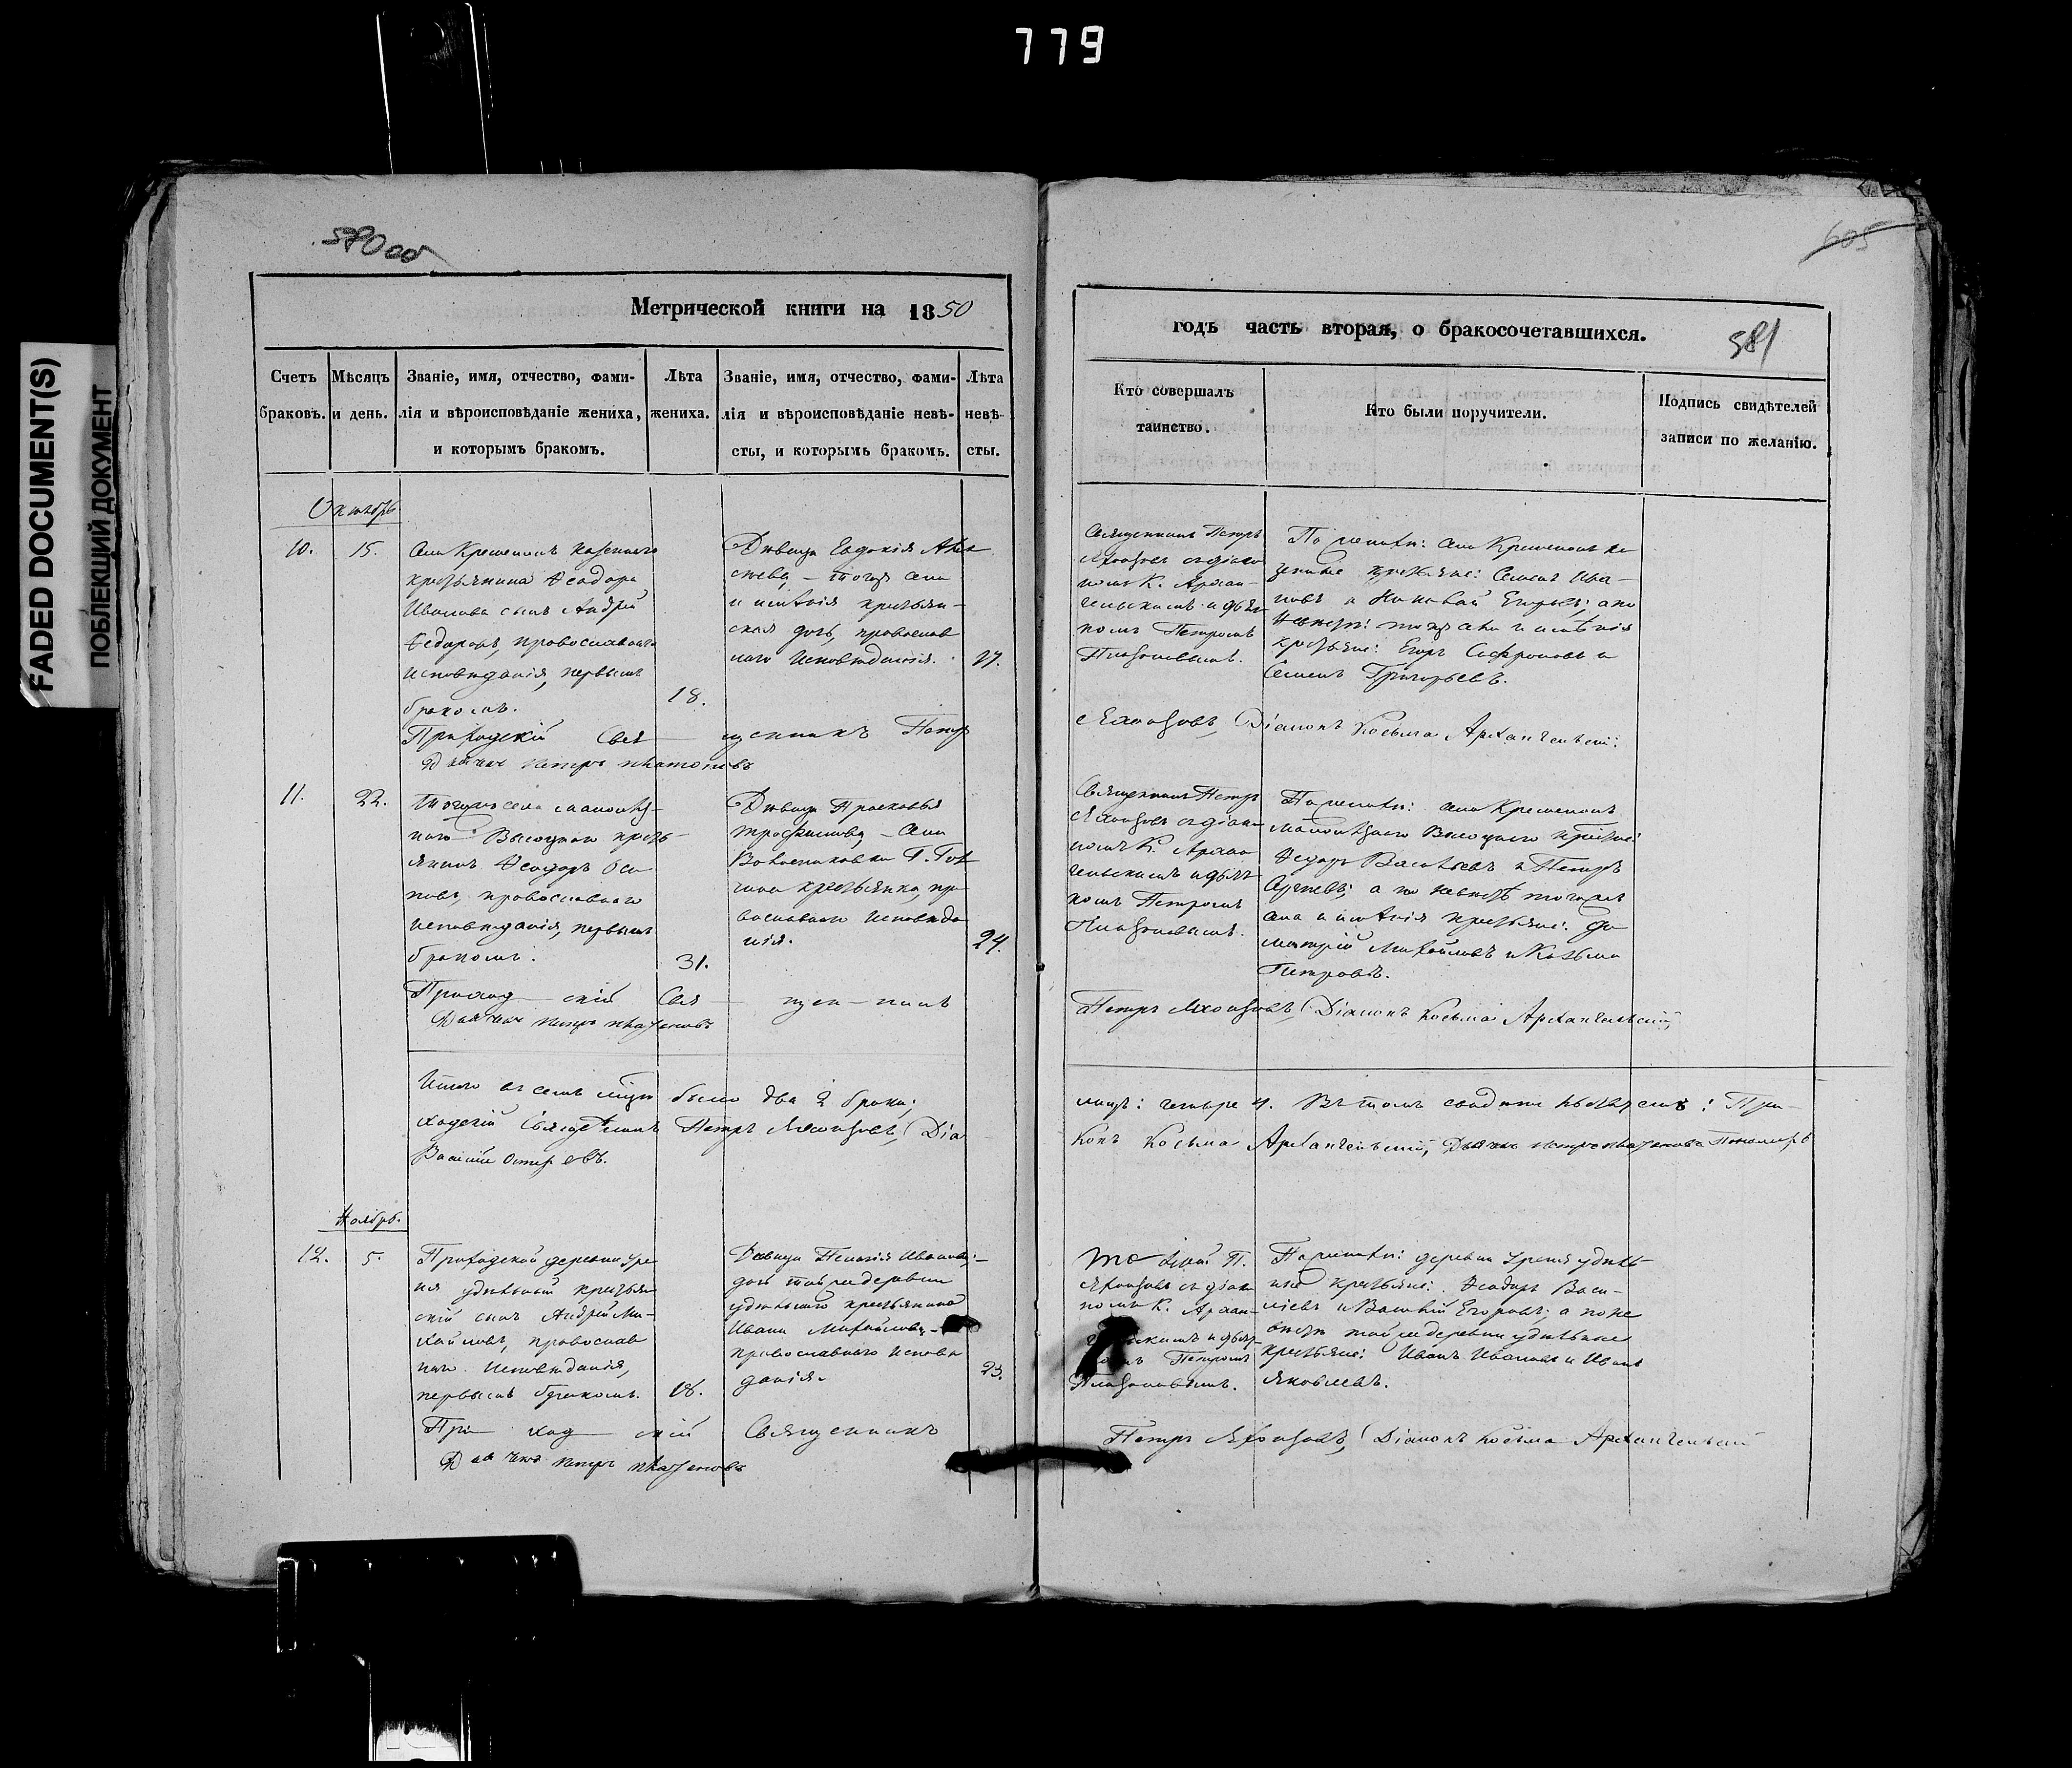 779
FADED DOCUMENT(S)
ПОБЛЕКЩИЙ ДОКУМЕНТ
580 об
Метрической книги на 1850
Счетъ браковъ.
Мѣсяцъ и день.
Званіе, имя, отчество, фами-
лія и вѣроисповѣданіе жениха,
и которымъ бракомъ.
Лѣта
жениха.
Званіе, имя, отчество, фами-
лія и вѣроисповѣданіе невѣ-
сты, и которымъ бракомъ.
Лѣта
невѣ-
сты.
Октябрь
10.
15.
Села Кременокъ казеннаго
крестьянина Ѳеодора
Иванова сынъ Андрей
Ѳедоровъ, православнаго
исповѣданія, первымъ
бракомъ.
18.
Дѣвица Евдокія
тогоже села
и имѣнія крестьян-
ская дочь, православ
наго исповѣданія.
Приходскій Свя щенникъ Петръ
Дьячекъ Петръ Платоновъ
11.
22.
Тогоже села
Высоцкаго кресть-
янинъ Ѳеодоръ Оси
повъ, православнаго
исповѣданія, первымъ
бракомъ.
31.
Дѣвица Прасковья
Трофимова, Села
крестьянка, пра
вославнаго исповѣда
нія.
24.
Приход скій Свя щен никъ
Дьячекъ Петръ Платоновъ
Итого въ семъ мѣсяцѣ было два 2 брака;
ходскій Священникъ Петръ Діа
Василій
Ноябрь.
12.
5.
Приходской деревни
удѣльный крестьян
скій сынъ Андрей Ми-
хайловъ, православ
наго исповѣданія,
первымъ бракомъ.
18.
Дѣвица Пелагія Иванова,
дочь тойже деревни
удѣльнаго крестьянина
Ивана Михайлова,
православнаго исповѣ
данія.
23.
При ход скій Священникъ
Дьячекъ Петръ Платоновъ
605
годъ часть вторая, о бракосочетавшихся.
581
Кто совершалъ
таинство.
Кто были поручители.
Подпись свидѣтелей
записи по желанію.
Священникъ Петръ
съ діако
номъ К. Архан-
гельскимъ и дьяч
комъ Петромъ
Платоновымъ.
По женихѣ: села Кременокъ ка
зенные крестьяне: Семенъ Ива-
новъ и Николай Егоровъ; а по
невѣстѣ: тогоже села и имѣнія
крестьяне: Егоръ Сафроновъ и
Семенъ Григорьевъ.
Діаконъ Косьма Архангельскій;
Священникъ Петръ
съ діако
номъ К. Архан
гельскимъ и дьяч
комъ Петромъ
Платоновымъ.
По женихѣ: села Кременокъ
Высоцкаго крестьяне:
Ѳедоръ Васильевъ и Петръ
Сергѣевъ; а по невѣстѣ тогоже
села и имѣнія крестьяне: Ди
митрій Михайловъ и Козьма
Петровъ.
Петръ Діаконъ Косьма Архангельскій,
лицъ: четыре 4. Въ томъ свидѣтельствуемъ: При-
конъ Косьма Архангельскій, Дьячекъ Петръ Платоновъ Пономарь
Тотже П.
съ діако
номъ К. Архан-
гельскимъ и дьяч
комъ Петромъ
Платоновымъ.
По женихѣ: деревни удѣль-
ные крестьяне: Ѳеодоръ Васи-
льевъ и Василій Егоровъ; а по не
вѣстѣ тойже деревни удѣльные
крестьяне: Иванъ Ивановъ и Иванъ
Яковлевъ.
Петръ Діаконъ Косьма Архангельскій